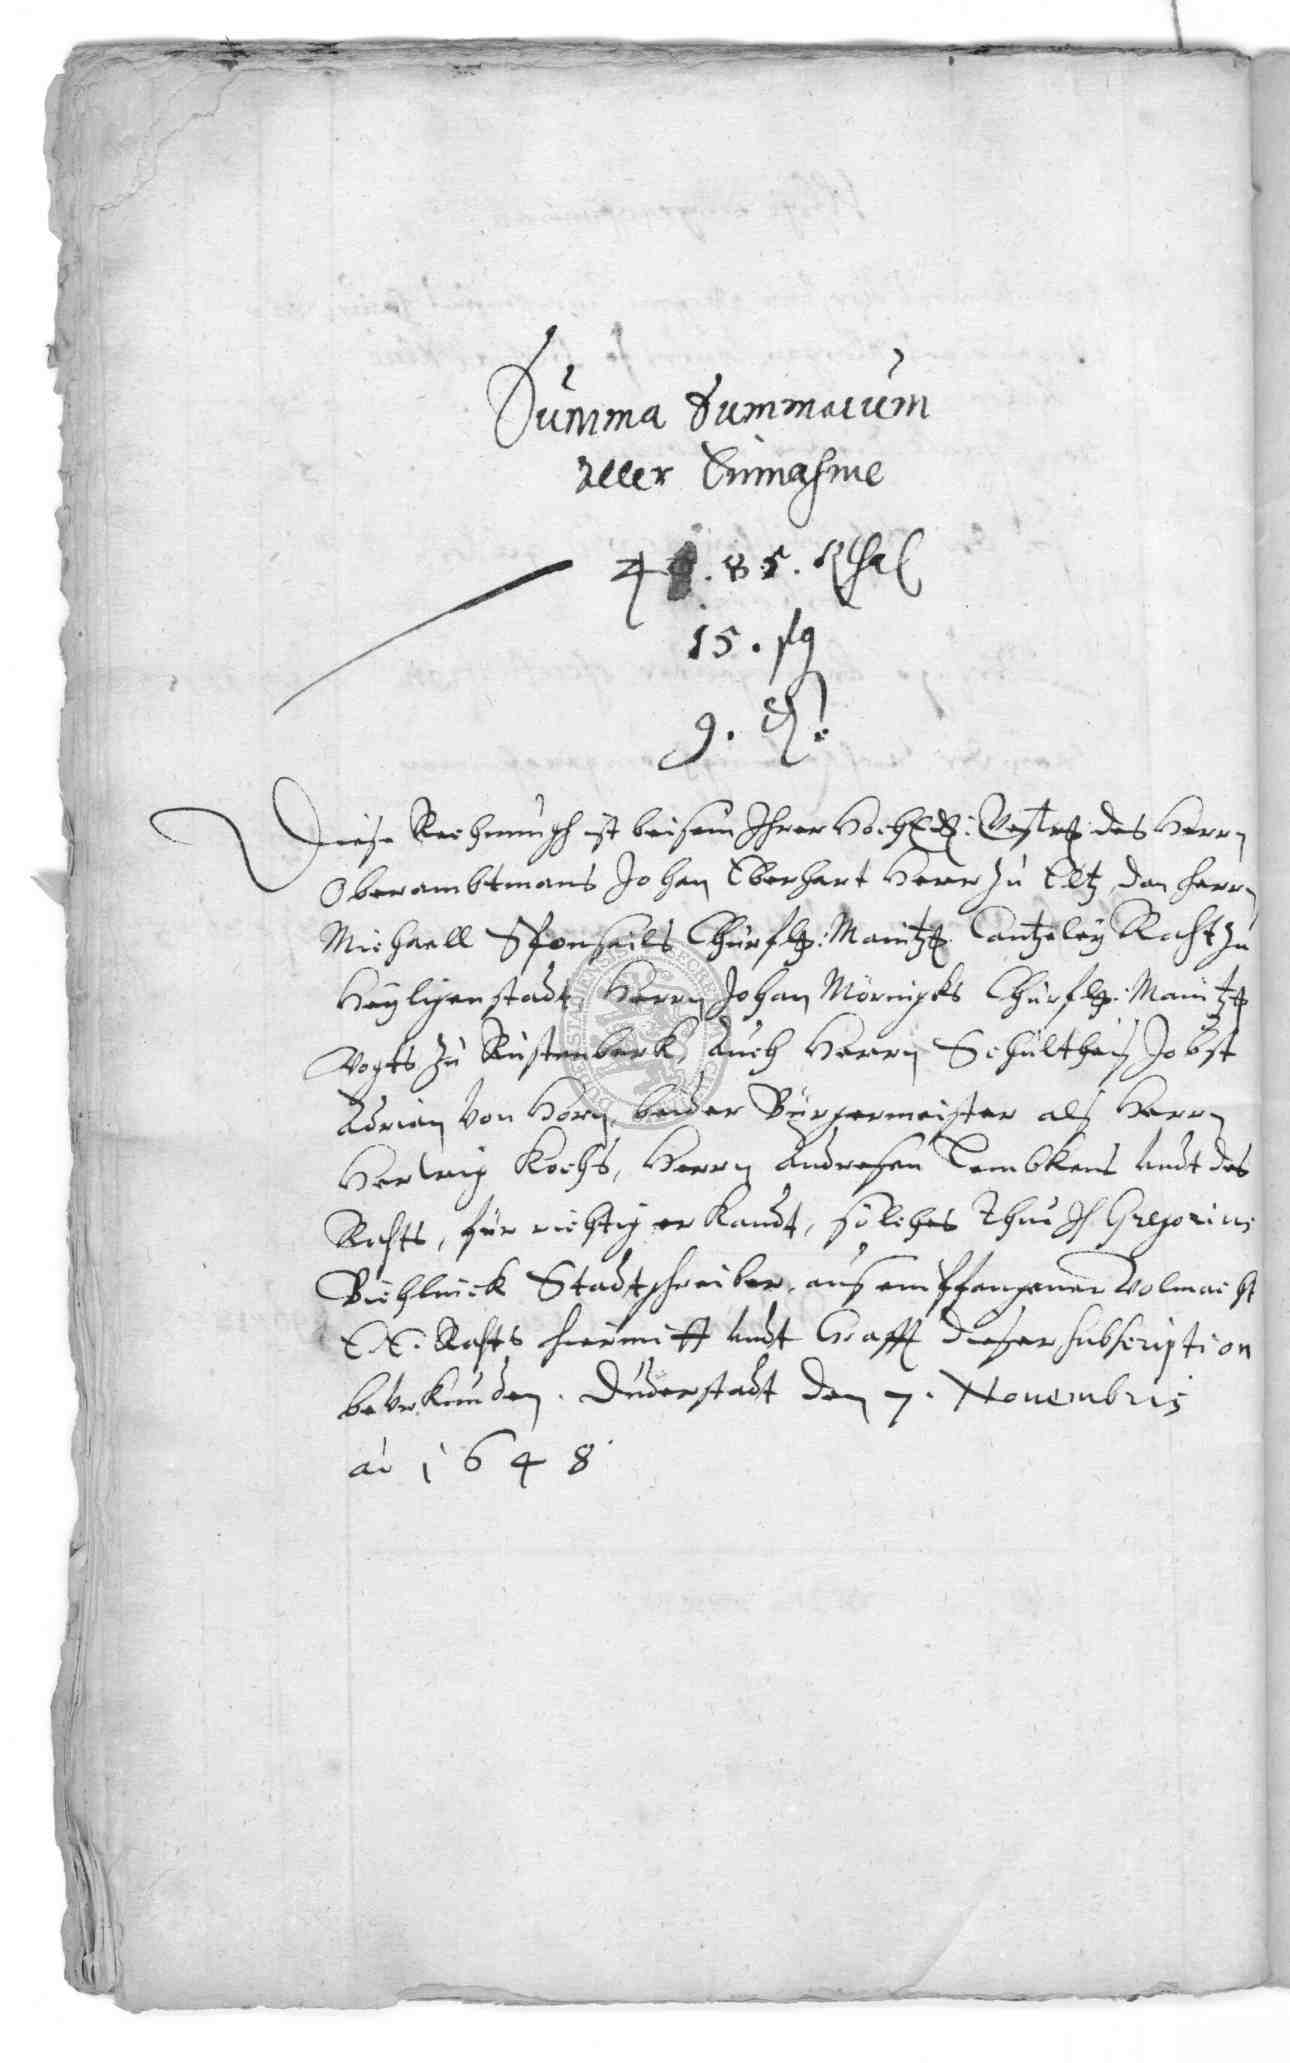 Summa Summarum
aller Einnahme
4 . 85. Rthal
15. sg
9. ₰.
Diese Rechnungh ist beisein Ihrer HochEd: Vestr: des Herrn
Oberambtmans Johan Eberhart Herr zu Eltz, dan Herrn
Michaell Sponsails Churfl: Maintz: Cantzeley Raht zu
Heyligenstadt, Herrn Johan Mörnigks Churfl: Maintz:
Vogts zu Rustenberk, auch Herrn Schultheis Jobst
Adrian von Horn, beider Bürgermeister als Herrn
Herwig Kochs, Herrn Andresen Lembkens undt des
Rahts, für richtig erkandt, solches thue Ich Gregorius
Stadtschreiber, aus empfangener Volmacht
E. E. Rahts hiermitt undt Crafft dieser subscription
beurkunden. Duderstadt den 7. Novembris
ao 1648